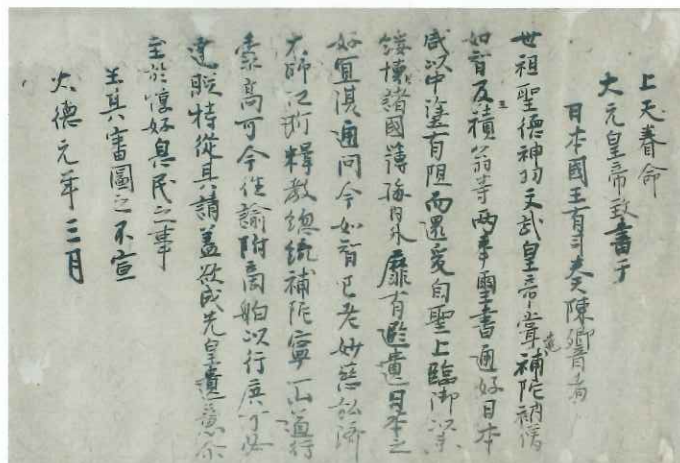 上天眷命
大元皇帝致書于
日本國王有司奏陳郷者
世祖聖德神功文武皇帝嘗遣補陀衲僧
如智及王積翁等兩奉璽書通好日本
咸以中途有阻而還爰自聖上臨御以来
綏懷諸國薄海内外靡有遐遺日本之
好宜復通問今如智已老妙慈弘濟
大師江浙釋教總統補陀寧一山道行
素高可令往諭附商舶以行庶可必
達朕特從其請蓋欲成先皇遺意尓
至於惇好息民之事
王其審圖之不宣
大德元年三月